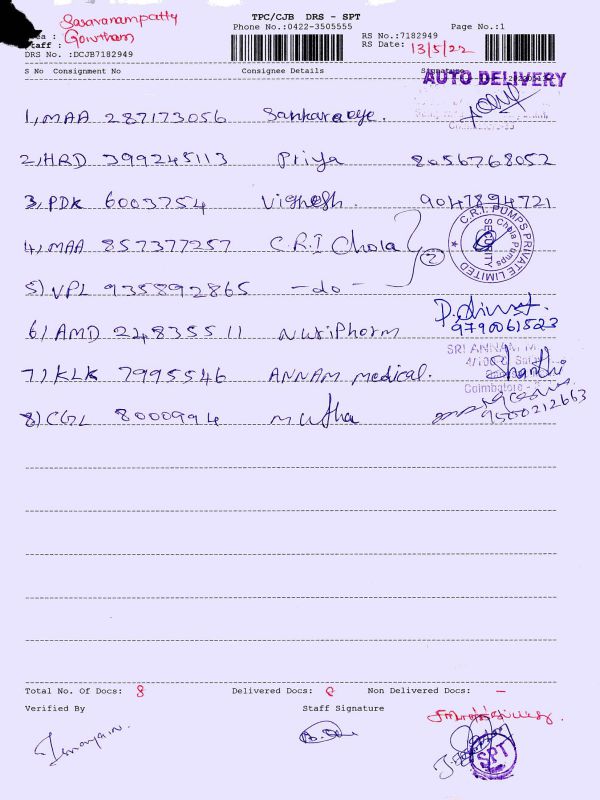 Saravanampatty
TPC/CJB DRS - SPT
Page No.:1
Area :
Gowtham
Phone No.:0422-3505555
RS No.:7182949
Staff :
RS Date: 13/5/22
DRS No. :DCJB7182949
S No Consignment No Consignee Details Signature
AUTO DELIVERY
1, MAA 287173056
2, HRD 399245113 Priya 8056768052
3, PDK 6003754 Vighesh. 9047894721
4, MAA 857377257 C.R.I Chola
C.R.I. PUMPS PRIVATE LIMITED
Chola Pumps
SECURITY
2
5) VPL 935892865 - do -
9790061523
6) AMD 224835511 Nutriphorm
SRI ANNAM
7) KLK 7995546 ANNAM medical.
Shanthi
Coimbatore
8) CGL 8000994 Mutha
9500212663
Total No. Of Docs: 8 Delivered Docs: 8 Non Delivered Docs: -
Verified By Staff Signature
SPT